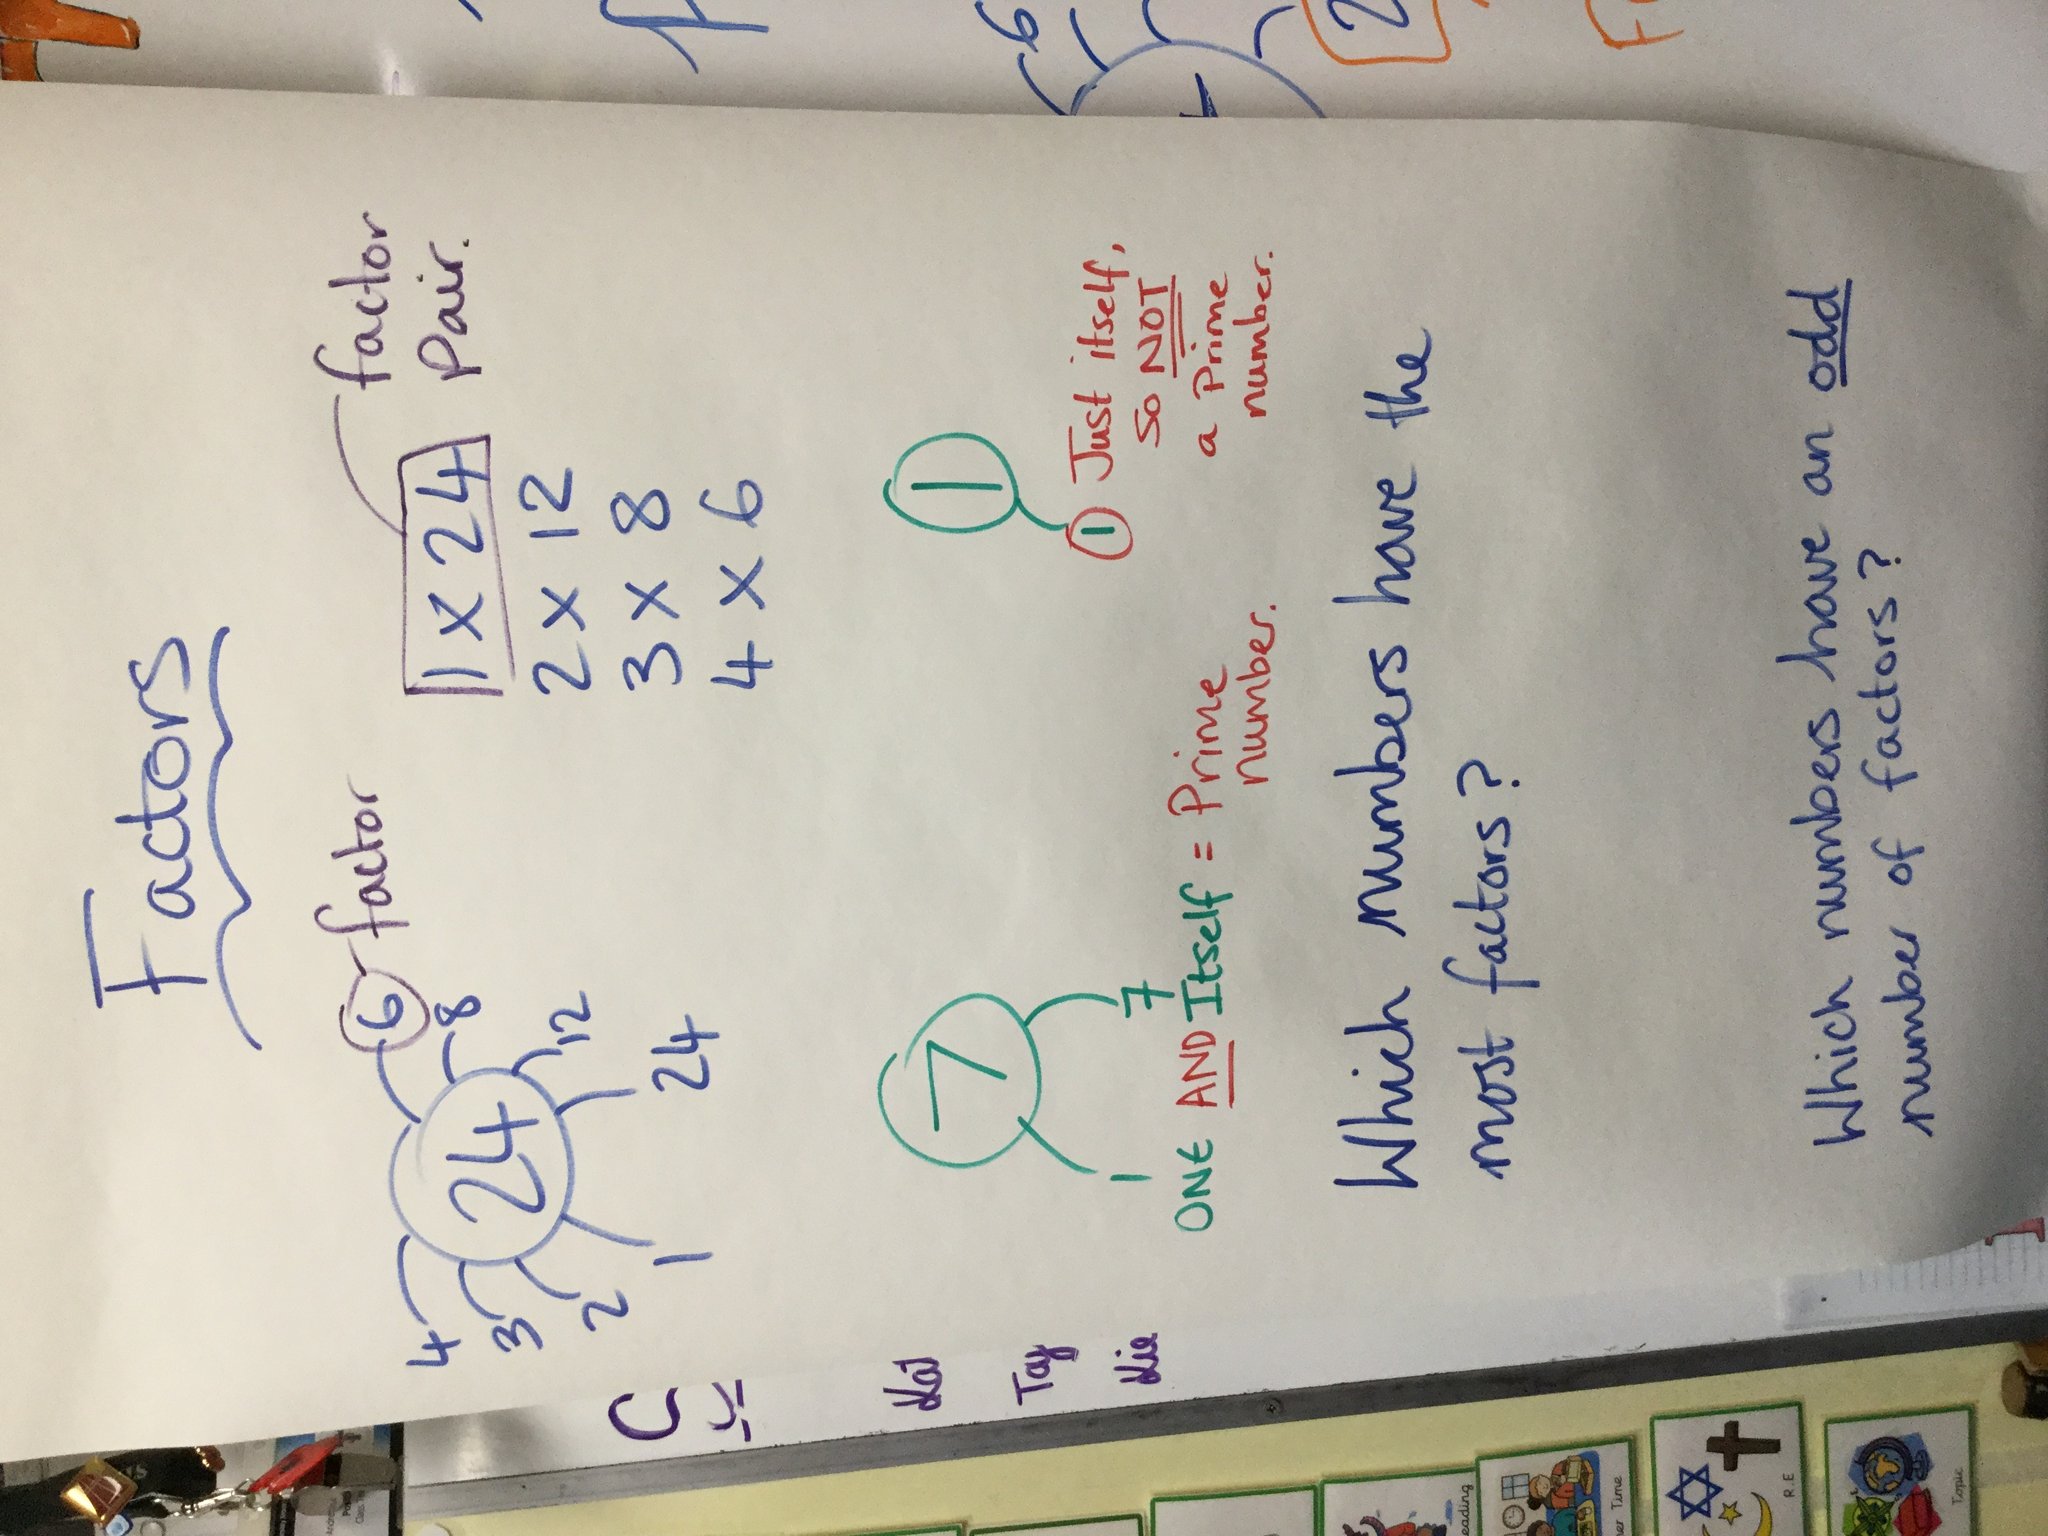 Factors
6 factor
4
24
8
3
12
2
1
24
factor
pair.
1 x 24
2 x 12
3 x 8
4 x 6
7
1
7
ONE AND Itself = Prime
number.
1
1 Just itself,
so NOT
a Prime
number.
Which numbers have the
most factors?
Which numbers have an odd
number of factors?
6
R.E
Topic